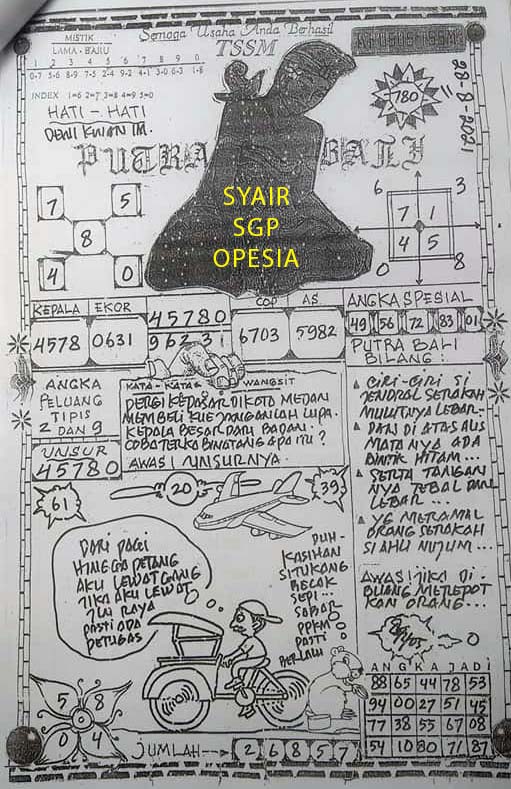 Semoga Usaha Anda Berhasil
TSSM
KHUSUS TSSM
MISTIK
LAMA - BARU
1 2 3 4 5 6 7 8 9 0
0-7 5-6 8-9 7-5 2-4 9-2 4-1 3-0 6-3 1-8
INDEX 1=6 2=7 3=8 4=9 5=0
HATI - HATI
DEWI KWAN IM.
780
28-8-2021
PUTRA BALI
SYAIR
SGP
OPESIA
7 5
8
4 0
6 3
7 1
4 5
0 8
KEPALA EKOR
4578 0631
45780
96231
COP AS
6703 5982
ANGKA SPESIAL
49 56 72 83 01
PUTRA BALI
BILANG:
ANGKA
PELUANG
TIPIS
2 DAN 9
UNSUR
45780
KATA - KATA WANGSIT
PERGI KEPASAR DIKOTA MEDAN
MEMBELI KUE JANGANLAH LUPA.
KEPALA BESAR DARI BADAN.
COBA TERKA BINATANG APA ITU ?
AWAS! UNSURNYA.
CIRI-CIRI SI
JENDRAL SERAKAH
MULUTNYA LEBAR-
DAN DI ATAS ALIS
MATA NYA ADA
BINTIK HITAM...
SERTA TANGAN
NYA TEBAL DAN
LEBAR...
YG MERAMAL
ORANG SERAKAH
SI AHLI NUJUM...
AWAS! JIKA DI-
BUANG MEREPOT
KAN ORANG...
61
20
39
DARI PAGI
HINGGA PETANG
AKU LEWAT GANG
JIKA AKU LEWAT
JLN RAYA
PASTI ADA
PETUGAS
DUH-
KASIHAN
SI TUKANG
BECAK
SEPI...
SABAR
PPKM
PASTI
BERLALU
0
ANGKA JADI
88 65 44 78 53
94 00 27 51 45
77 38 55 67 08
54 10 80 71 87
5 8
8
0 4
JUMLAH--> 2 6 8 5 7